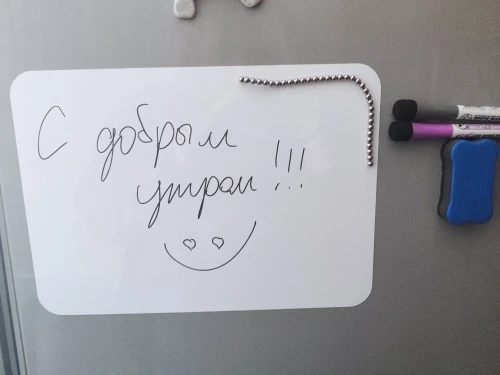 С добрым
утром!!!